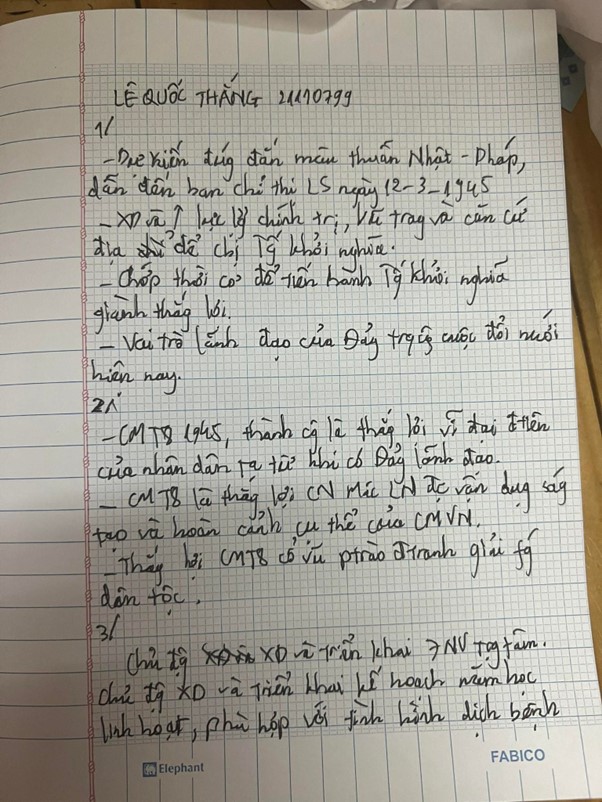 LÊ QUỐC THẮNG 21110799
1/
- Dự kiến đúg đắn mâu thuẫn Nhật - Pháp,
dẫn đến ban chỉ thị LS ngày 12-3-1945
- XD và ↑ lực lg chính trị, vũ trag và căn cứ
địa để cbị Tg khởi nghĩa.
- Chớp thời cơ để tiến hành Tg khởi nghĩa
giành thắg lợi.
- Vai trò lãnh đạo của Đảg trg cuộc đổi mới
hiện nay.
2/
- CMT8 1945, thành cg là thắg lợi vĩ đại đtiên
của nhân dân ta từ khi có Đảg lãnh đạo.
- CMT8 là thắg lợi CN Mác LN đc vận dụg ság
tạo và hoàn cảnh cụ thể của CMVN.
- Thắg lợi CMT8 cổ vũ ptrào đtranh giải fg
dân tộc.
3/
Chủ độg XD và triển khai 7 NV trọg tâm.
Chủ độg XD và triển khai kế hoạch năm học
linh hoạt, phù hợp với tình hình dịch bệnh
Elephant
FABICO